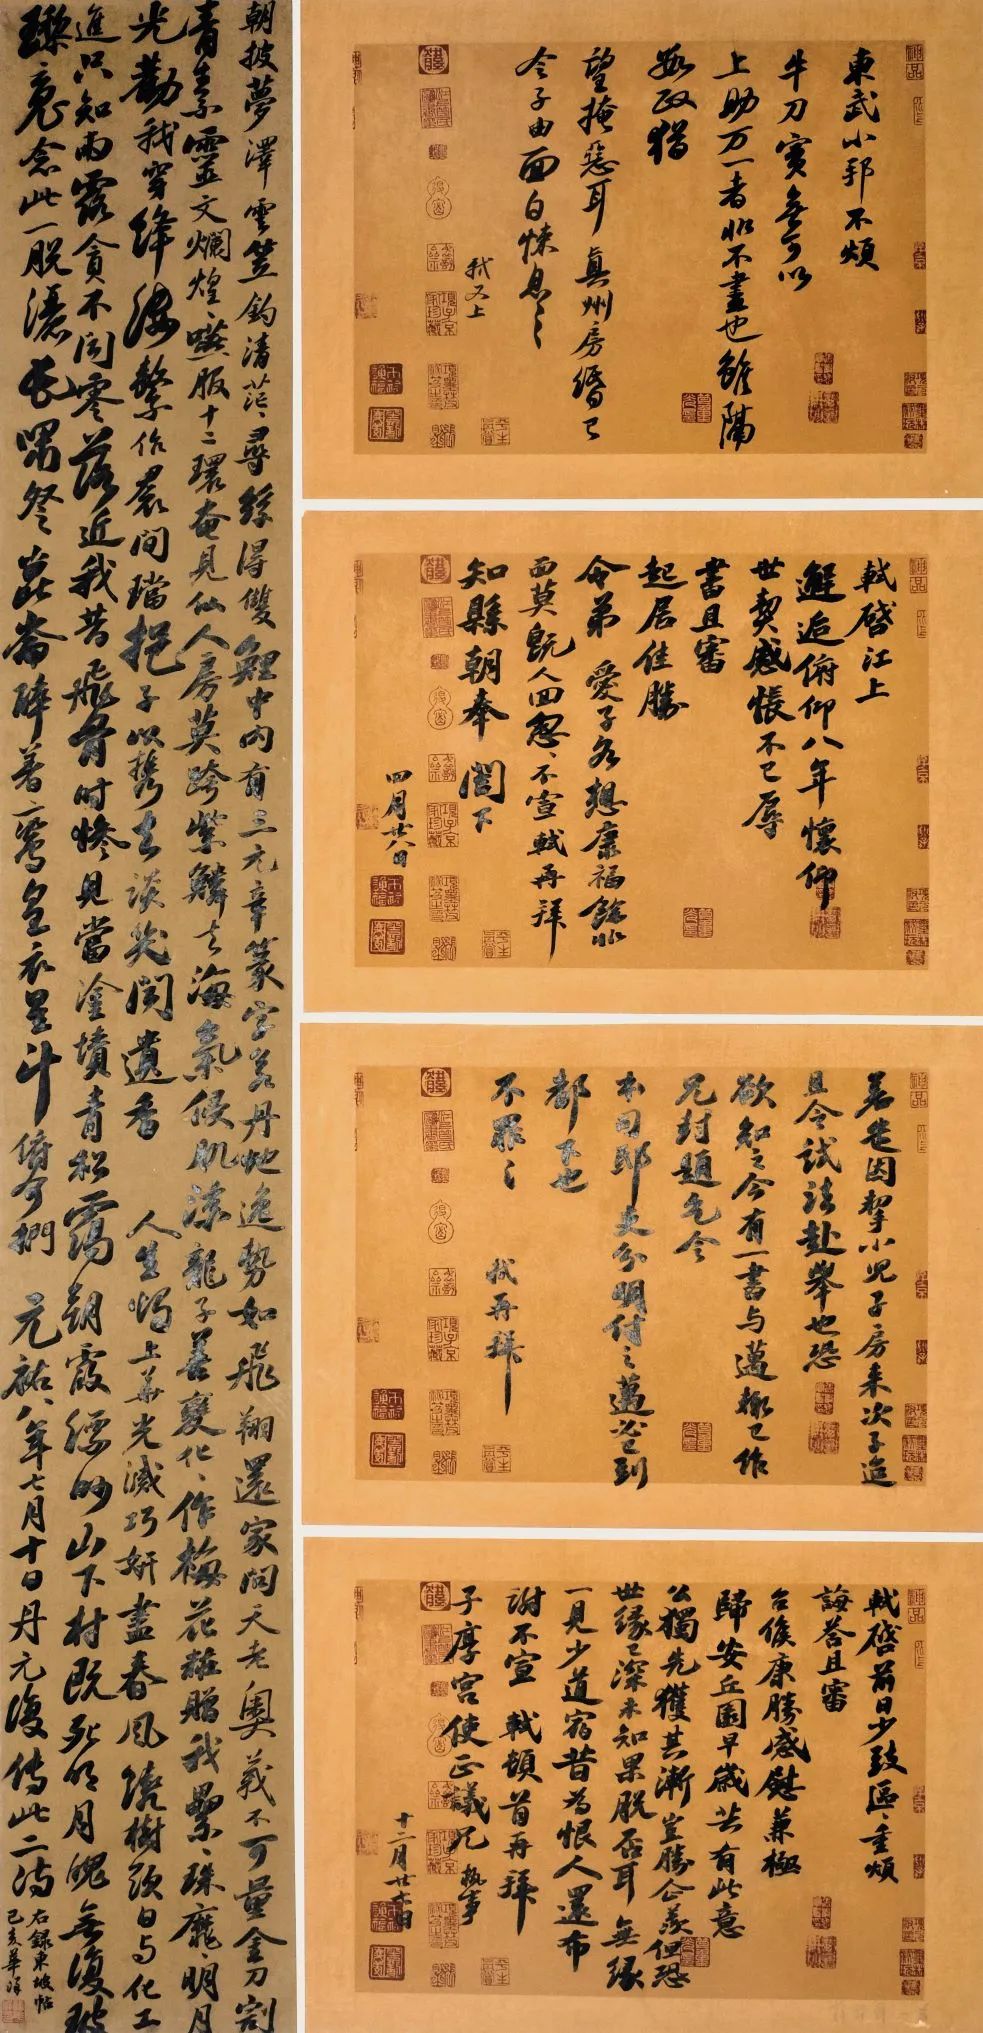 東武小邦不煩
牛刀實無可以
上助万一者非不盡也雖隔
數政猶
望掩惡耳 真州房緡已
令子由面白悚息々
軾又上
軾啓江上
邂逅俯仰八年懷仰
世契感悵不已辱
書且審
起居佳勝
令弟 愛子各想康福餘非
面莫既人回怱々不宣軾再拜
知縣朝奉 閣下
四月廿八日
因挈小兒子房來次子迨
且令試法赴舉也恐
欲知之今有一書与邁輒已作
兄封題乞令
本司郵吏分明付之邁必已到
都下也
不罪々
軾再拜
軾啓前日少致區々重煩
誨答且審
台候康勝感慰兼極
歸安丘園早歲共有此意
公獨先獲其漸豈勝企羨但恐
世緣已深未知果脫否耳無緣
一見少道宿昔為恨人還布
謝不宣 軾頓首再拜
子厚宮使正議兄執事
十二月廿七日
朝披夢澤雲笠釣清茫々尋絲得雙鯉中內有三元章篆字若丹虵逸勢如飛翔還家問天老奧義不可量金刀割
青素靈文爛煌々嚥服十二環奄見仙人房莫跨紫鱗去海氣侵肌涼龍子善變化々作梅花粧贈我纍々珠靡々明月
光勸我穿絳縷繫作裠間璫挹子以攜去談笑聞遺香 人生燭上華光滅巧妍盡春風繞樹頭日与化工
進只知雨露貪不聞零落近我昔飛骨時慘見當塗墳青松靄朝霞縹眇山下村既死明月魄無復玻
瓈魂念此一脫灑長嘯祭崑崙醉著鸞皇衣星斗俯可捫 元祐八年七月十日丹元復傳此二詩
右錄東坡帖
己亥華